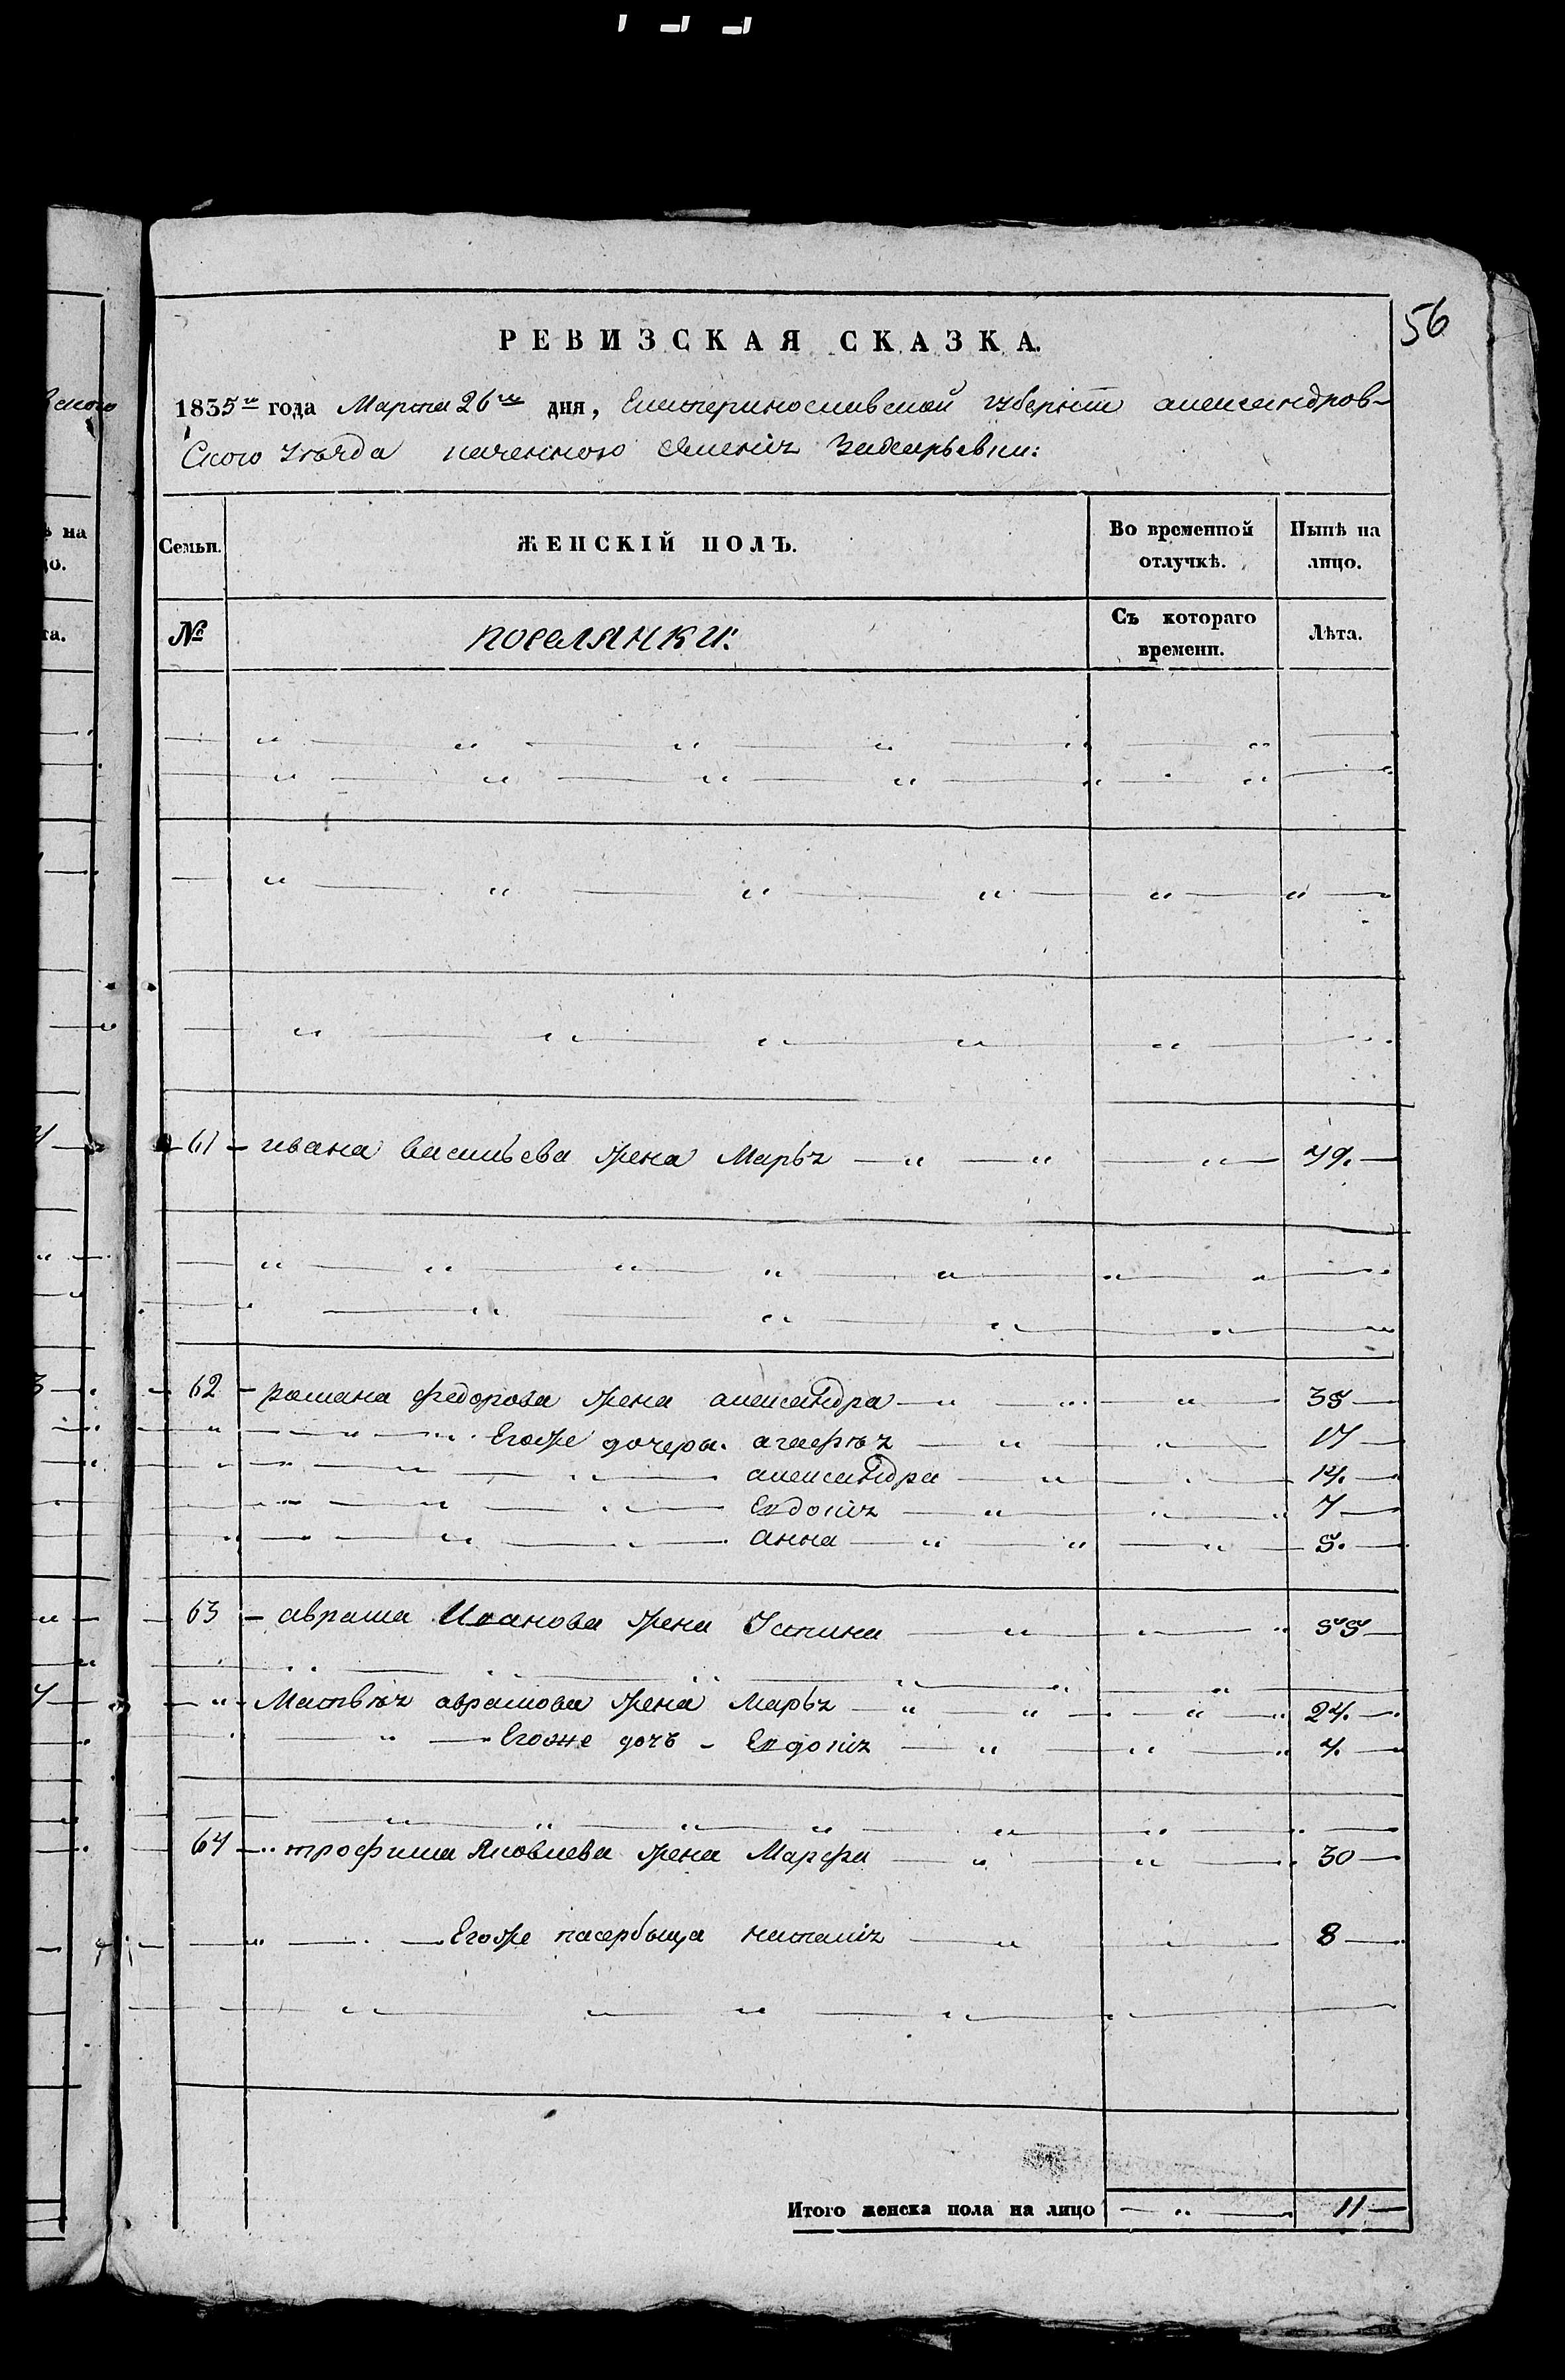 56
РЕВИЗСКАЯ СКАЗКА.
1835го года Марта 26го дня, Екатеринославской губернiи александров-
ского уезда казенного селенiя Захарьевки:
Семьи. ЖЕНСКIЙ ПОЛЪ. Во временной отлучкѣ. Нынѣ на лицо.
№ поселянки: Съ котораго времени. Лѣта.
61 ивана васильева жена Марья 49.
62 романа федорова жена александра 35
Егоже дочеры. агафья 17
александра 14.
Евдокiя 7
анна 5.
63 аврама Иванова жена Устина 55
Матвѣя аврамова жена Марья 24.
Егоже дочь - Евдокiя 4.
64 трофима Яковлева жена Марфа 30
Егоже пасербыца наталiя 8
Итого женска пола на лицо 11